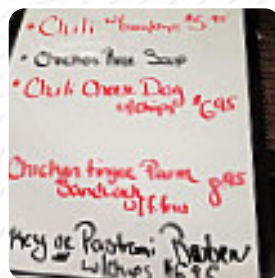 • Chili
• Chicken Rice Soup
• Chili Cheese Dog
w/chips $6.95
Chicken finger Parm
Sandwich 8.95
w/f.fries
Key or Pastrami Reuben
w/chips